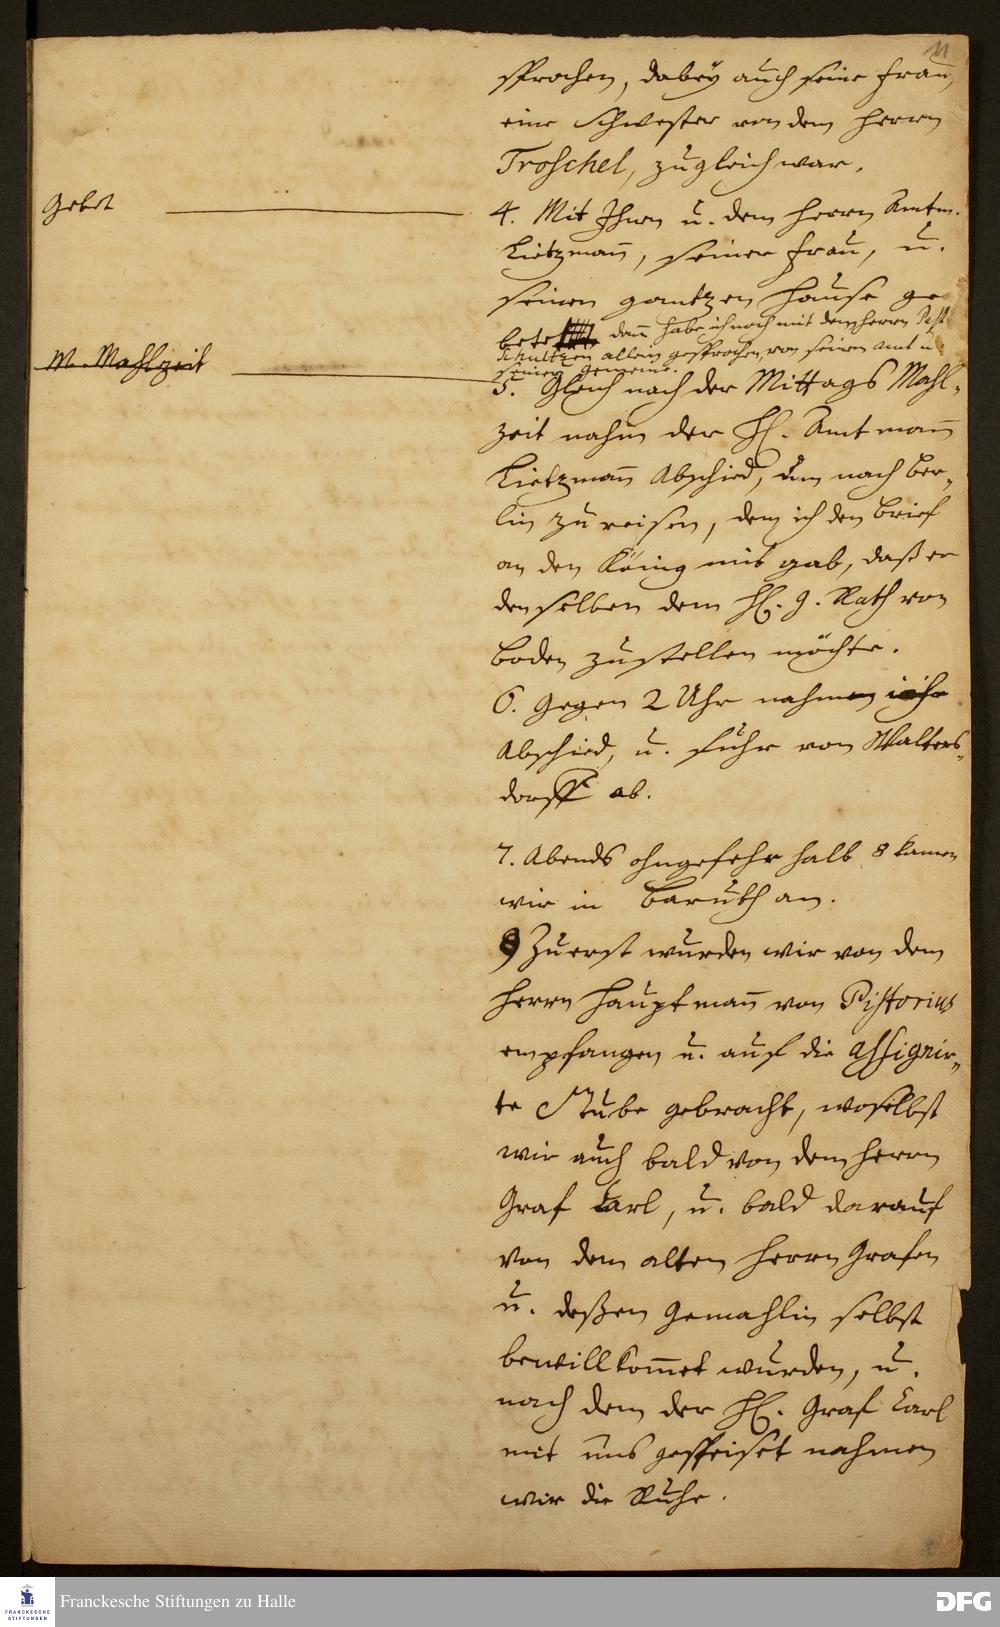 11
sprochen, dabey auch seine Frau,
eine Schwester von dem Herrn
Troschel, zugleich war.
Gebet
4. Mit Ihnen u. dem Herrn Amtm.
Lietzmañ, seiner Frau, u.
seinem gantzen Hause ge
betet, dañ habe ich noch mit dem Herrn Past
Schultzen allein gesprochen, von seinem Amt u.
seiner Gemeine.
M. Mahlzeit
5. Gleich nach der Mittags Mahl-
zeit nahm der H. Amtmañ
Lietzmañ Abschied, um nach Ber-
lin zu reisen, dem ich den Brief
an den König mit gab, daß er
denselben dem H. g. Rath von
Boden zustellen möchte.
6. Gegen 2 Uhr nahm ich
Abschied, u. fuhr von Walters-
dorff ab.
7. Abends ohngefehr halb 8 kamen
wir in Baruth an.
8 Zuerst wurden wir von dem
Herrn Hauptmañ von Pistorius
empfangen u. auf die assignir-
te Stube gebracht, woselbst
wir auch bald von dem Herrn
Graf Carl, u. bald darauf
von dem alten Herrn Grafen
u. deßen Gemahlin selbst
bewillkom̃et wurden, u.
nach dem der H. Graf Carl
mit uns gespeiset nahmen
wir die Ruhe.
FRANCKESCHE STIFTUNGEN
Franckesche Stiftungen zu Halle
DFG